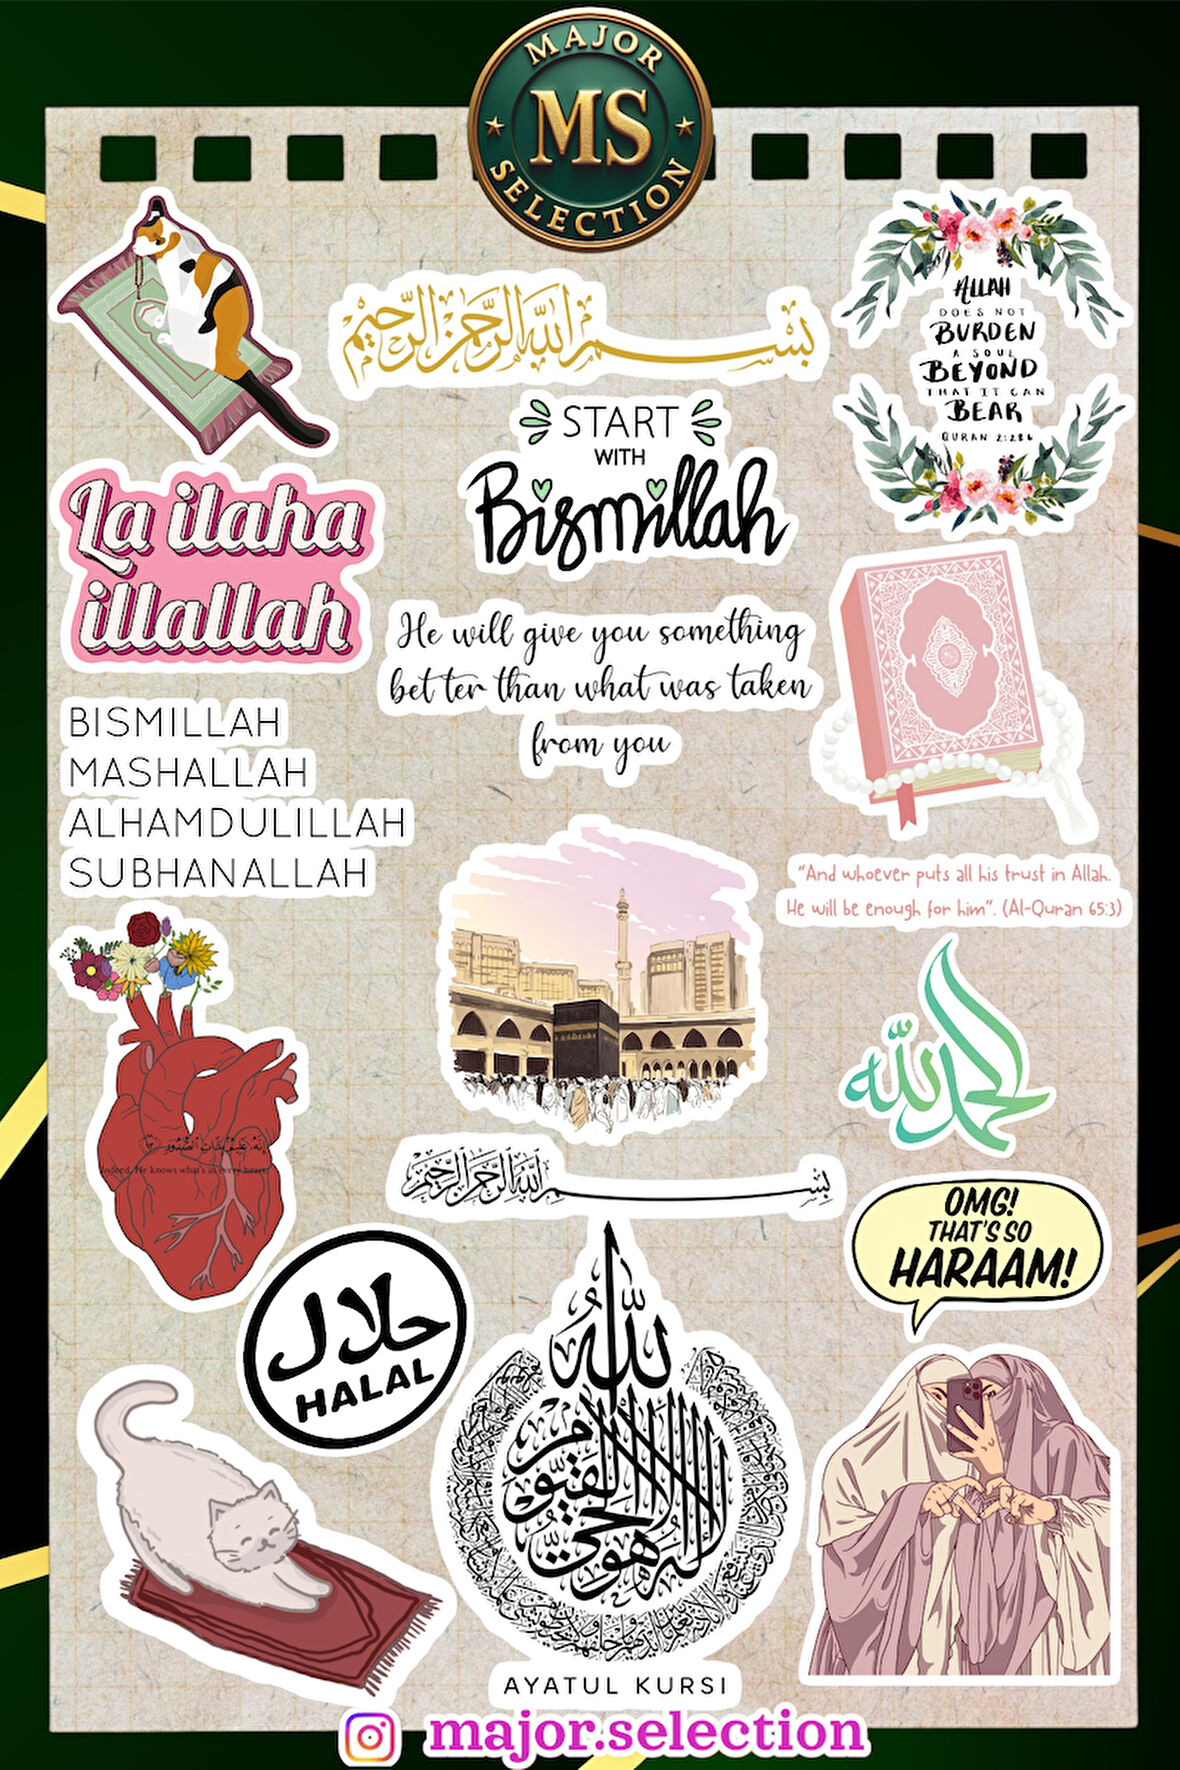 MAJOR
MS
SELECTION
بسم الله الرحمن الرحيم
ALLAH
DOES NOT
BURDEN
A SOUL
BEYOND
THAT IT CAN
BEAR
QURAN 2:286
START
WITH
Bismillah
La ilaha
illallah
He will give you something
better than what was taken
from you
BISMILLAH
MASHALLAH
ALHAMDULILLAH
SUBHANALLAH
"And whoever puts all his trust in Allah.
He will be enough for him". (Al-Quran 65:3)
الحمد لله
إنه عليم بذات الصدور
Indeed, He knows what's in every heart.
بسم الله الرحمن الرحيم
OMG!
THAT'S SO
HARAAM!
حلال
HALAL
الله لا إله إلا هو الحي القيوم
AYATUL KURSI
major.selection